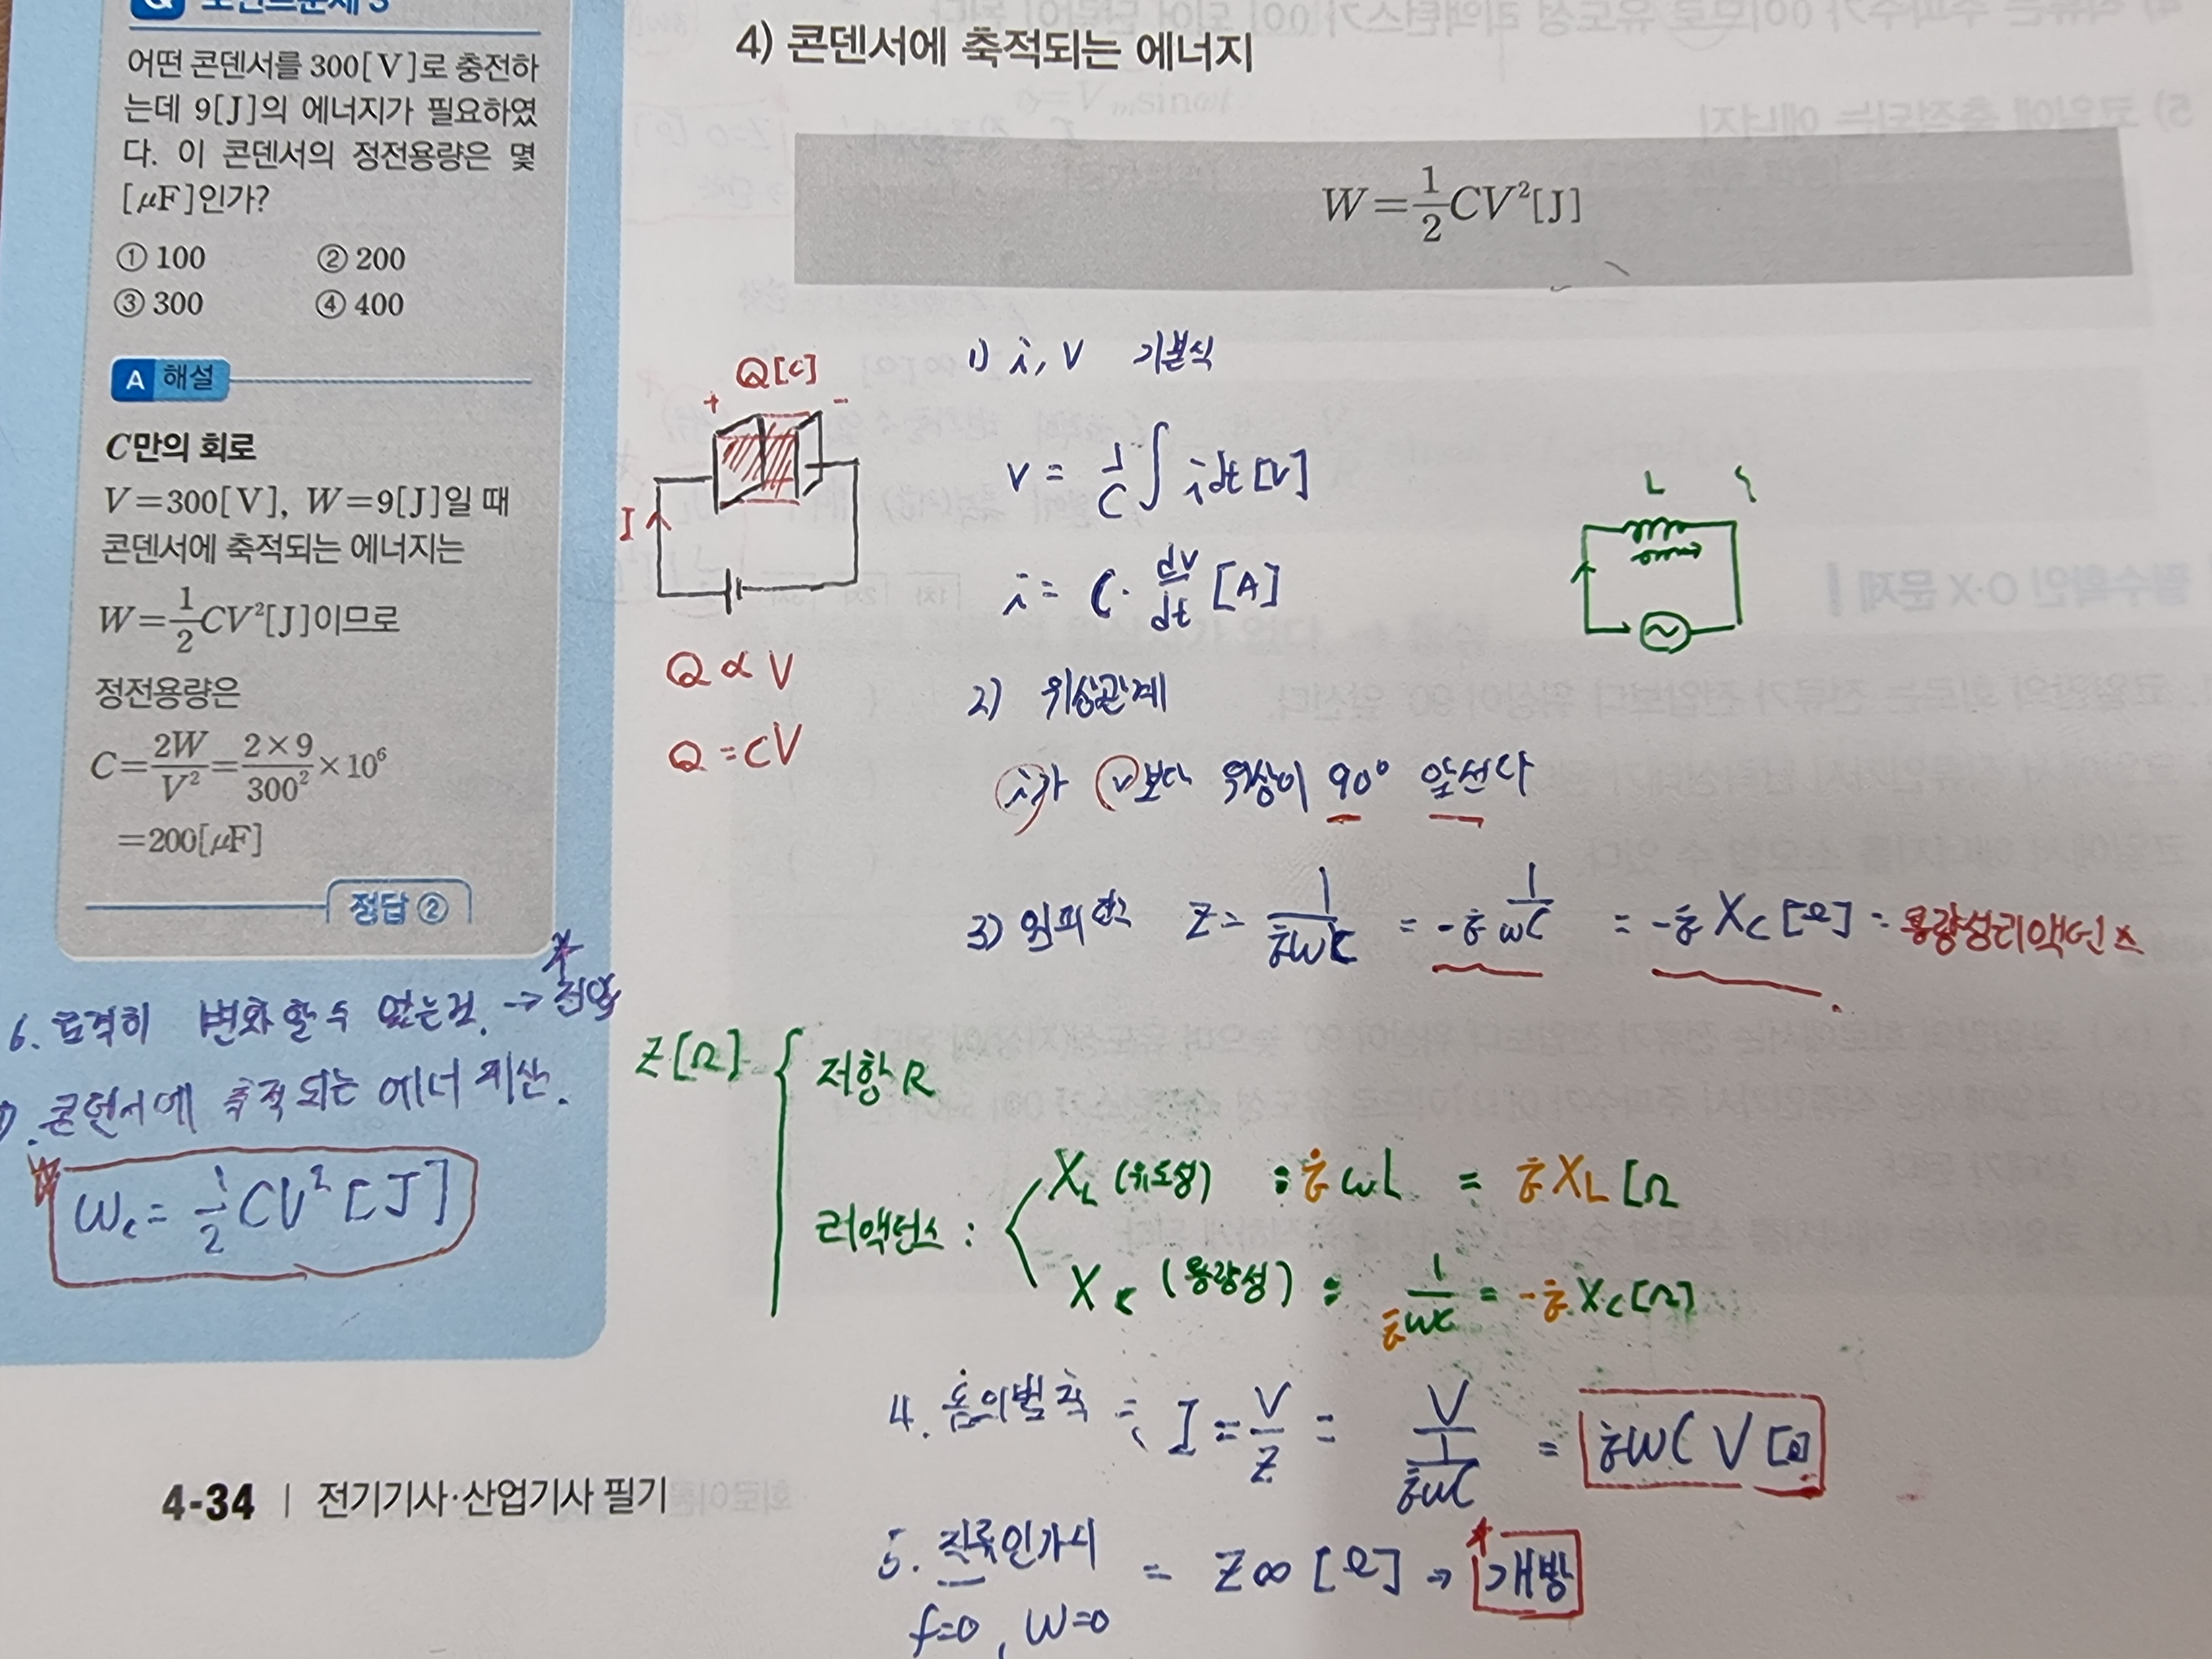 포인트문제 3
어떤 콘덴서를 300[V]로 충전하
는데 9[J]의 에너지가 필요하였
다. 이 콘덴서의 정전용량은 몇
[μF]인가?
① 100 ② 200
③ 300 ④ 400
A 해설
C만의 회로
V=300[V], W=9[J]일 때
콘덴서에 축적되는 에너지는
W=1/2CV²[J]이므로
정전용량은
C=2W/V²=2×9/300²×10⁶
=200[μF]
정답 ②
6. 급격히 변화할수 없는것. → 전압
7. 콘덴서에 축적되는 에너지 계산.
Wc = 1/2 CV² [J]
4) 콘덴서에 축적되는 에너지
W=1/2CV²[J]
Q[C]
+ -
I
Q ∝ V
Q = CV
1) i, V 기본식
V = 1/C ∫ i dt [V]
i = C · dv/dt [A]
L
2) 위상관계
i가 v보다 위상이 90° 앞선다
3) 임피던스 Z = 1/jωC = -j 1/ωC = -j Xc [Ω] = 용량성리액턴스
Z[Ω]
저항 R
리액턴스 :
XL (유도성) : jωL = jXL [Ω
Xc (용량성) : 1/jωC = -j Xc [Ω]
4. 옴의법칙 = I = V/Z = V/(1/jωC) = jωCV [Ω]
5. 직류인가시 = Z∞ [Ω] → 개방
f=0, W=0
4-34 | 전기기사·산업기사 필기